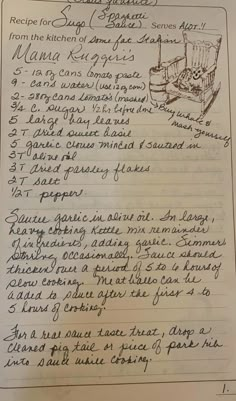 Recipe for Sugo (Spaghetti Sauce) Serves Alot!
from the kitchen of Some fat Italian
Mama Ruggeri's
5 - 12 oz cans tomato paste
9 - cans water (use 12 oz can)
2 - 28 oz cans tomatoes (mashed)
Buy whole &
mash yourself
3/4 c. Sugar 1/2 hr before done
5 large bay leaves
2 T dried sweet basil
5 garlic cloves minced & sauteed in
3 T olive oil
3 T dried parsley flakes
2 T salt
1/2 T pepper
Sautee garlic in olive oil. In large,
heavy cooking kettle mix remainder
of ingredients, adding garlic. Simmer
stirring occasionally. Sauce should
thicken over a period of 5 to 6 hours of
slow cooking. Meatballs can be
added to sauce after the first 4 to
5 hours of cooking.
For a real sauce taste treat, drop a
cleaned pig tail or piece of pork rib
into sauce while cooking.
1.